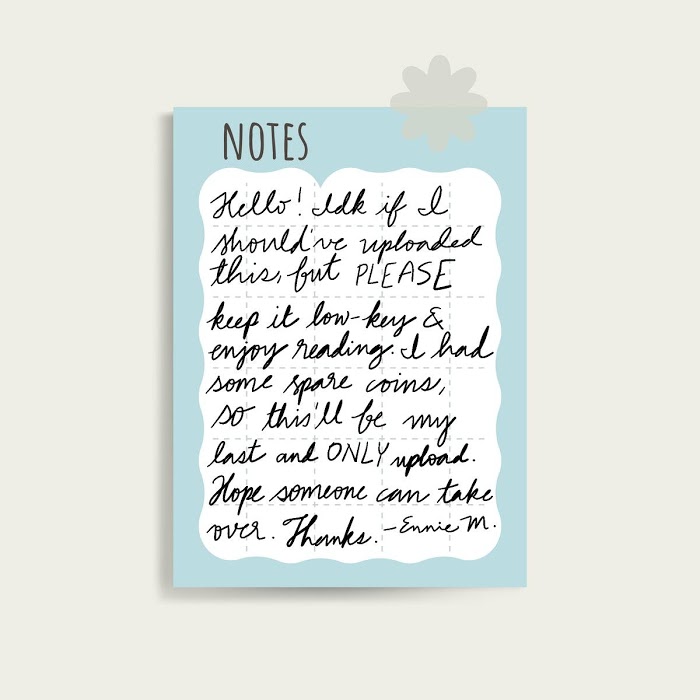 NOTES
Hello! Idk if I
should've uploaded
this, but PLEASE
keep it low-key &
enjoy reading. I had
some spare coins,
so this'll be my
last and ONLY upload.
Hope someone can take
over. Thanks. -Ennie M.